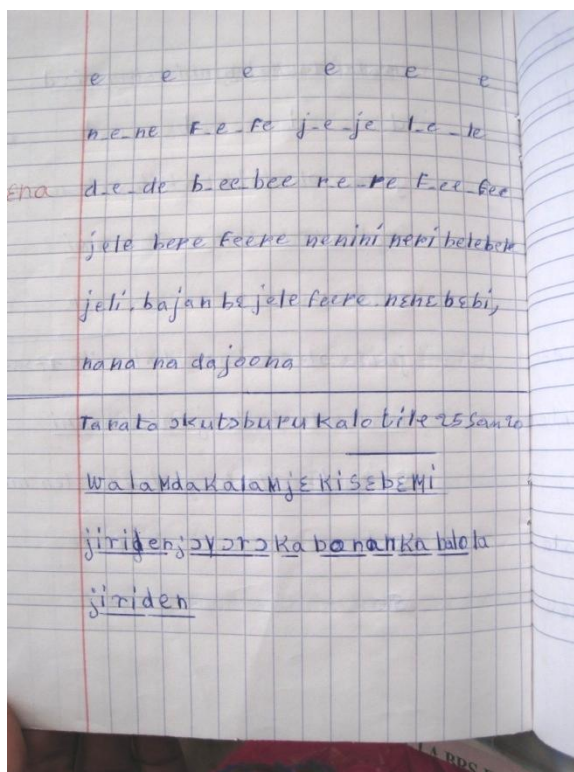 e e e e e e
n_e_ne F_e_Fe j_e_je l_e_le
ena d_e_de b_ee_bee r_e_re F_ee_Fee
jele bere Feere nenini neri belebele
jeli. bajan bɛ jele feere nɛnɛ bɛbi,
nana na dajoona
Tarata ɔkutɔburu kalo tile 25 San 20
walanda kalanjɛ kisɛbɛmi
jiriden jɔyɔrɔ ka bonan ka balo la
jiriden